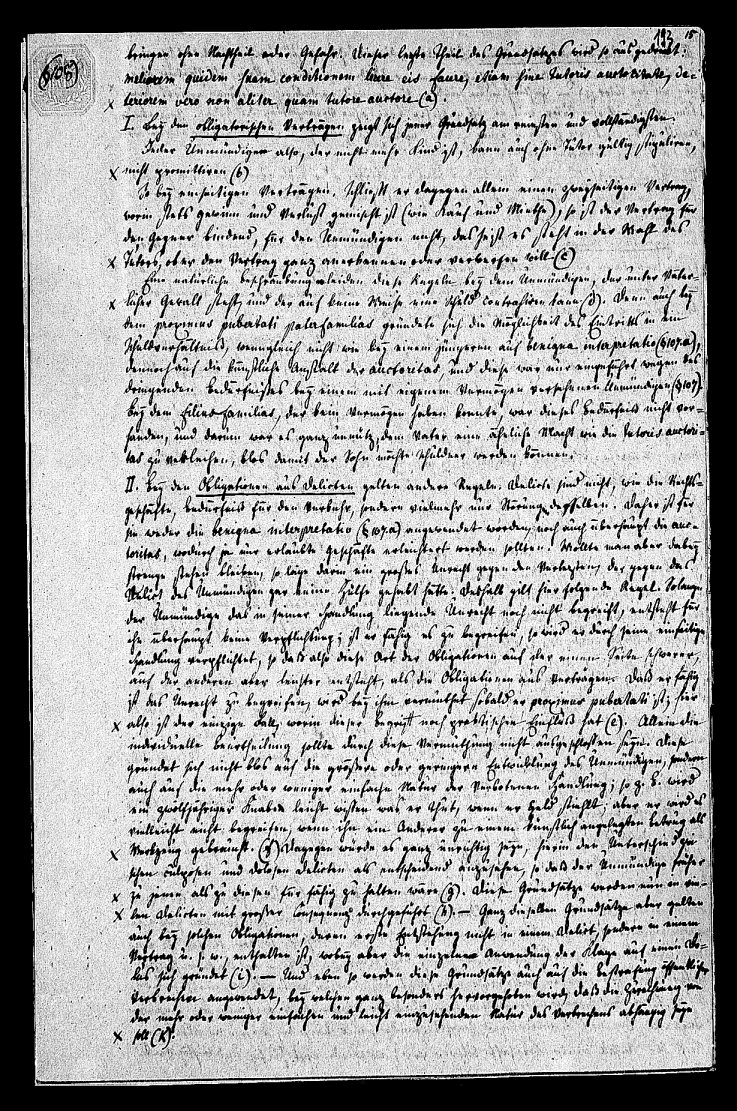 193 15
(§108)
bringen ohne Nachtheil oder Gefahr. Dieser letzte Theil des Grundsatzes wird so ausgedrückt:
meliorem quidem suam conditionem licere eis facere, etiam sine tutoris auctoritate, de-
x teriorem vero non aliter quam tutore auctore (a).
I. Bey den obligatorischen Verträgen zeigt sich jener Grundsatz am reinsten und vollständigsten.
Jeder Unmündige also, der nicht mehr Kind ist, kann auch ohne Tutor gültig stipuliren,
x nicht promittiren (b)
So bey einseitigen Verträgen. Schließt er dagegen allein einen zweyseitigen Vertrag,
worin stets Gewinn und Verlust gemischt ist (wie Kauf und Miethe), so ist der Vertrag für
den Gegner bindend, für den Unmündigen nicht, das heißt es steht in der Wahl des
x Tutors, ob er den Vertrag ganz anerkennen oder verwerfen will (c)
Eine natürliche Beschränkung leiden diese Regeln bey dem Unmündigen, der unter väter-
x licher Gewalt steht, und der auf keine Weise eine Schuld contrahiren kann (d). Denn auch bey
dem proximus pubertati paterfamilias gründete sich die Möglichkeit des Eintritts in ein
Schuldverhältniß, wenngleich nicht wie bey einem jüngeren auf benigna interpretatio (§107.a),
dennoch auf die künstliche Anstalt der auctoritas, und diese war nur eingeführt wegen des
dringenden Bedürfnisses bey einem mit eigenem Vermögen versehenen Unmündigen (§107).
Bey dem filiusfamilias, der kein Vermögen haben konnte, war dieses Bedürfniß nicht vor-
handen, und darum war es ganz unnütz, dem Vater eine ähnliche Macht wie die tutoris auctori-
tas zu verleihen, blos damit der Sohn möchte Schuldner werden können.
II. Bey den Obligationen aus Delicten gelten andere Regeln. Delicte sind nicht, wie die Rechts-
geschäfte, Bedürfniß für den Verkehr, sondern vielmehr nur Störung desselben. Daher ist für
sie weder die benigna interpretatio (§107.a) angewendet worden, noch auch überhaupt die auc-
toritas, wodurch ja nur erlaubte Geschäfte erleichtert werden sollten. Wollte man aber dabey
strenge stehen bleiben, so läge darin ein großes Unrecht gegen den Verletzten, der gegen das
Delict des Unmündigen gar keine Hülfe gehabt hätte. Deshalb gilt hier folgende Regel. Solange
der Unmündige das in seiner Handlung liegende Unrecht noch nicht begreift, entsteht für
ihn überhaupt keine Verpflichtung; ist er fähig es zu begreifen, so wird er durch seine einseitige
Handlung verpflichtet, so daß also diese Art der Obligationen auf der einen Seite schwerer,
auf der anderen aber leichter entsteht, als die Obligationen aus Verträgen. Daß er fähig
ist das Unrecht zu begreifen, wird bey ihm vermuthet sobald er proximus pubertati ist; hier
x also ist der einzige Fall, worin dieser Begriff noch praktischen Einfluß hat (e). Allein die
individuelle Beurtheilung sollte durch diese Vermuthung nicht ausgeschlossen seyn. Diese
gründet sich nicht blos auf die größere oder geringere Entwicklung des Unmündigen, sondern
auch auf die mehr oder weniger einfache Natur der verbotenen Handlung; so z. B. wird
ein zwölfjähriger Knabe leicht wissen was er thut, wenn er Geld stiehlt; aber er wird es
vielleicht nicht begreifen, wenn ihn ein Anderer zu einem künstlich angelegten Betrug als
x Werkzeug gebraucht (f). Dagegen würde es ganz unrichtig seyn, hierin den Unterschied zwi-
schen culposen und dolosen Delicten als entscheidend anzusehen, so daß der Unmündige früher
x zu jenen als zu diesen für fähig zu halten wäre (g). Diese Grundsätze werden nun in vie-
x len Delicten mit großer Consequenz durchgeführt (h). — Ganz dieselben Grundsätze aber gelten
auch bey solchen Obligationen, deren erste Entstehung nicht in einem Delict, sondern in einem
Vertrag u. s. w. enthalten ist, wobey aber die einzelne Anwendung der Klage auf einen Do-
lus sich gründet (i). — Und eben so werden diese Grundsätze auch auf die Bestrafung öffentlicher
Verbrechen angewendet, bey welchen ganz besonders hervorgehoben wird, daß die Zurechnung von
der mehr oder weniger einfachen und leicht einzusehenden Natur des Verbrechens abhängig seyn
x soll (k).